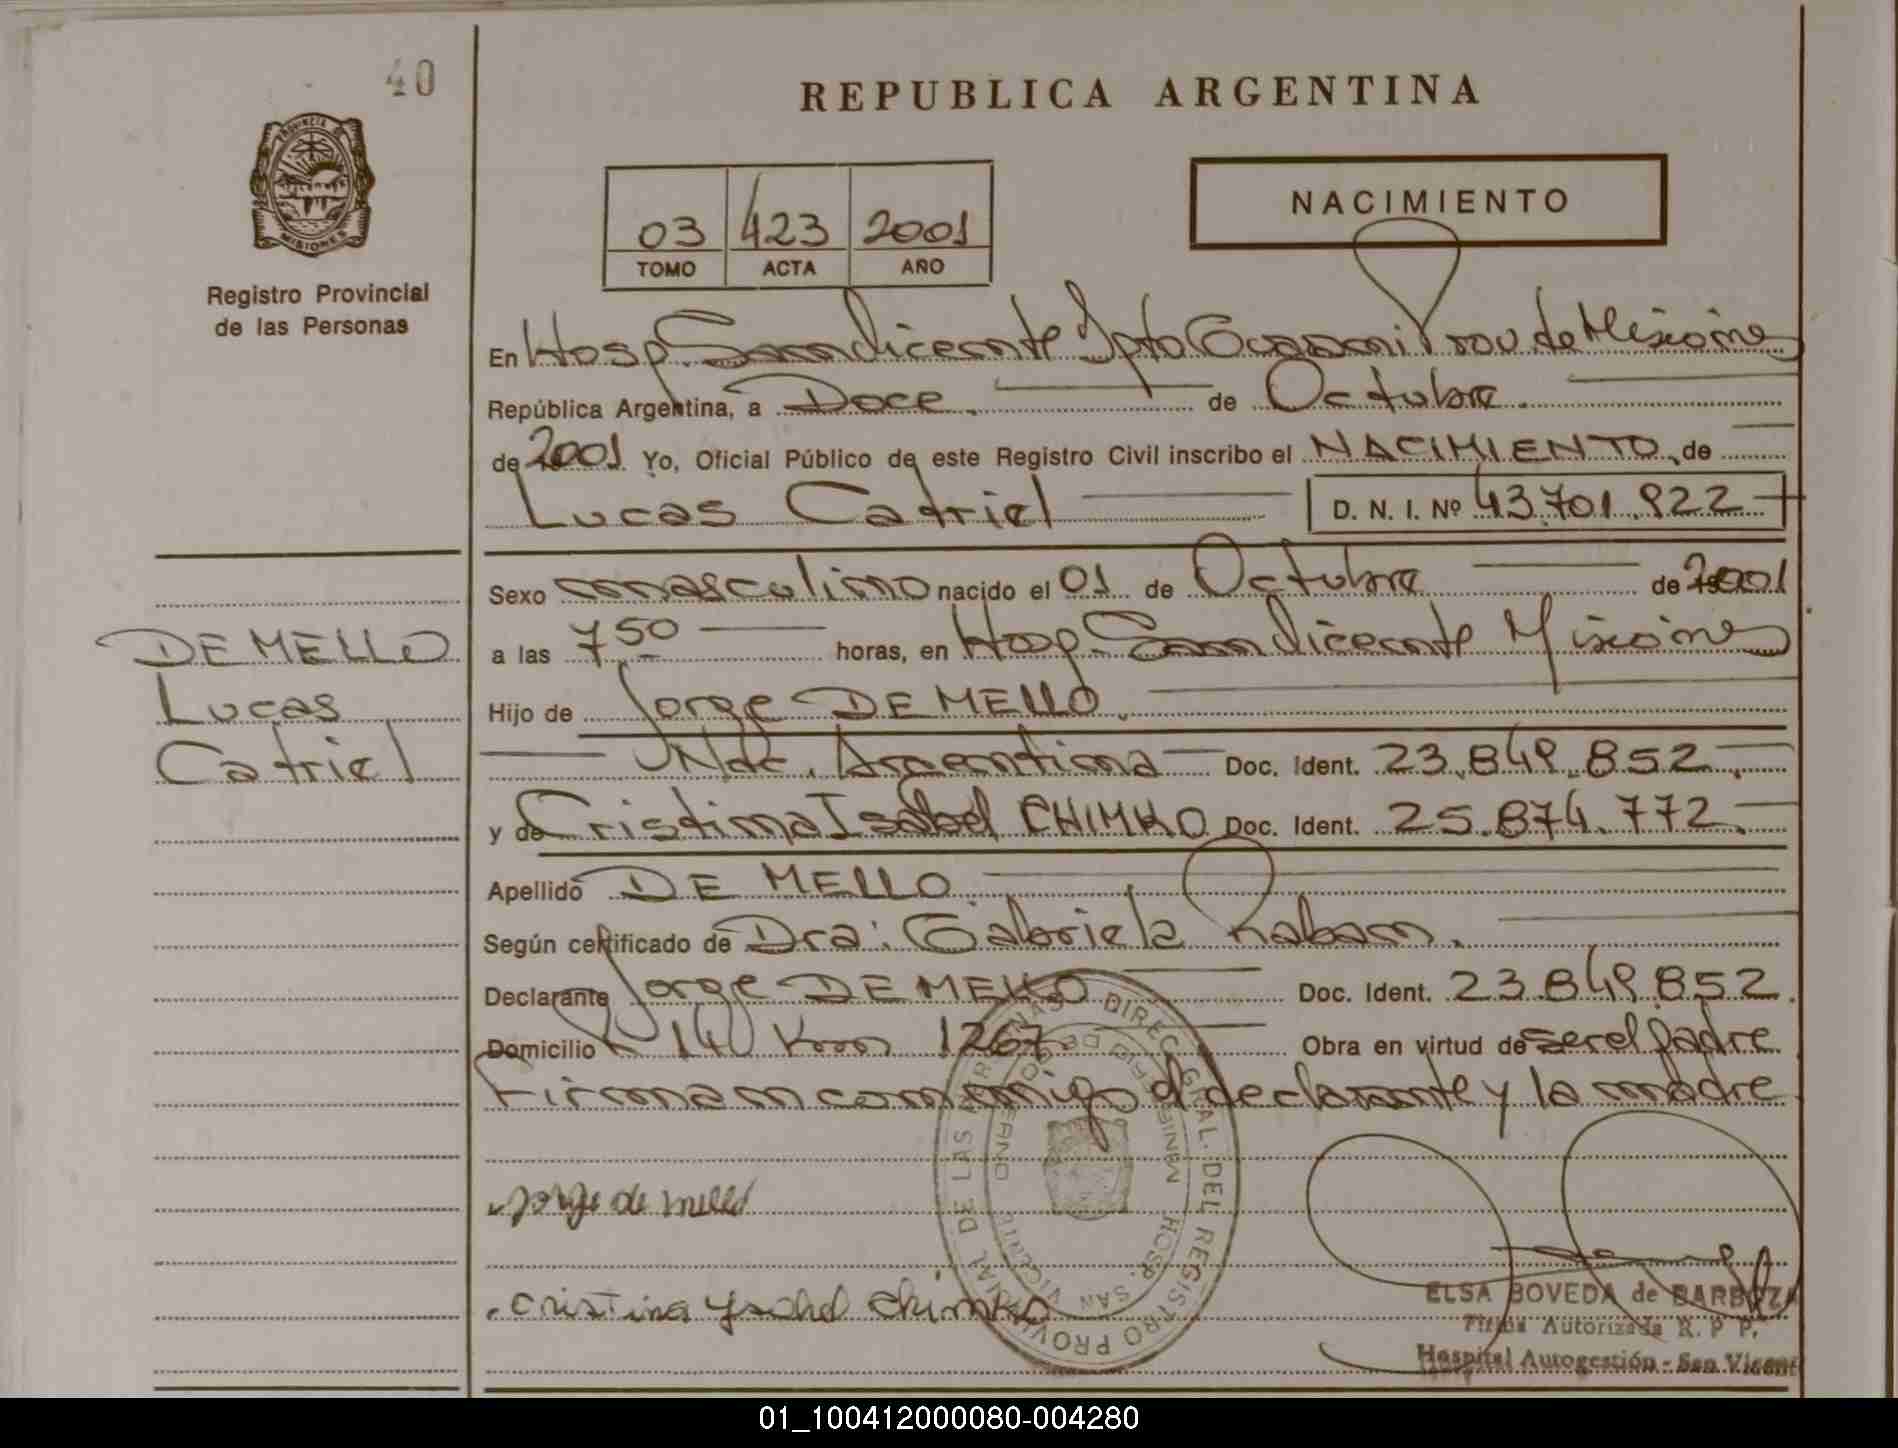 40
REPUBLICA ARGENTINA
PROVINCIA DE
MISIONES
Registro Provincial
de las Personas
03 423 2001
TOMO ACTA AÑO
NACIMIENTO
En Hosp. San Vicente Dpto Guaraní Prov de Misiones
República Argentina, a Doce. de Octubre.
de 2001 Yo, Oficial Público de este Registro Civil inscribo el NACIMIENTO de
Lucas Catriel D. N. I. Nº 43.701.822
Sexo masculino nacido el 01 de Octubre de 2001
a las 7 50 horas, en Hosp. San Vicente Misiones
Hijo de Jorge DE MELLO.
Nac. Argentina Doc. Ident. 23.849.852.
y de Cristina Isabel CHIMKO Doc. Ident. 25.874.772.
Apellido DE MELLO
Según certificado de Dra: Gabriela Raban.
Declarante Jorge DE MELLO Doc. Ident. 23.849.852.
Domicilio R 14 Km 1267 Obra en virtud de ser el padre
Firman conmigo el declarante y la madre
DE MELLO
Lucas
Catriel
Jorge de mello
cristina ysabel chimko
DIREC. GRAL. DEL REGISTRO PROVINCIAL DE LAS PERSONAS
HOSP. SAN VICENTE
ELSA BOVEDA de BARBOZA
Firma Autorizada R. P. P.
Hospital Autogestión - San Vicent
01_100412000080-004280